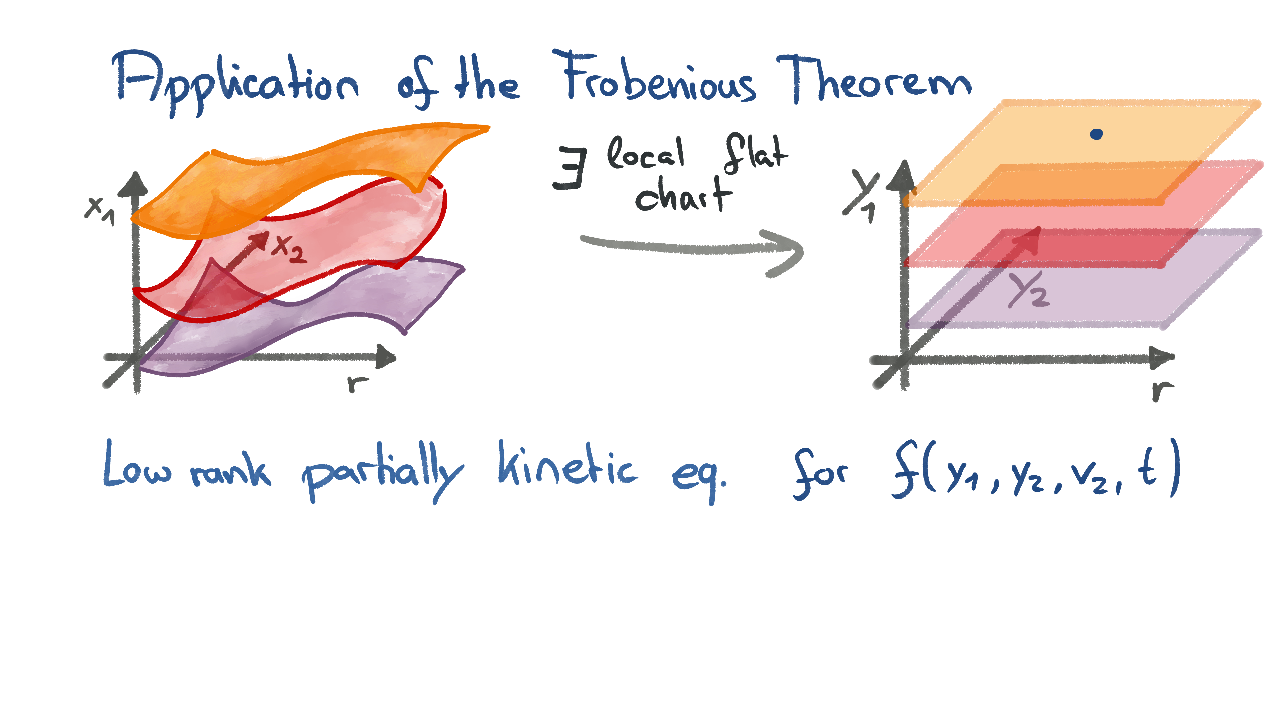 Application of the Frobenious Theorem
∃ local flat
chart
x₁
x₂
r
y₁
y₂
r
Low rank partially kinetic eq. for f(y₁, y₂, v₂, t)